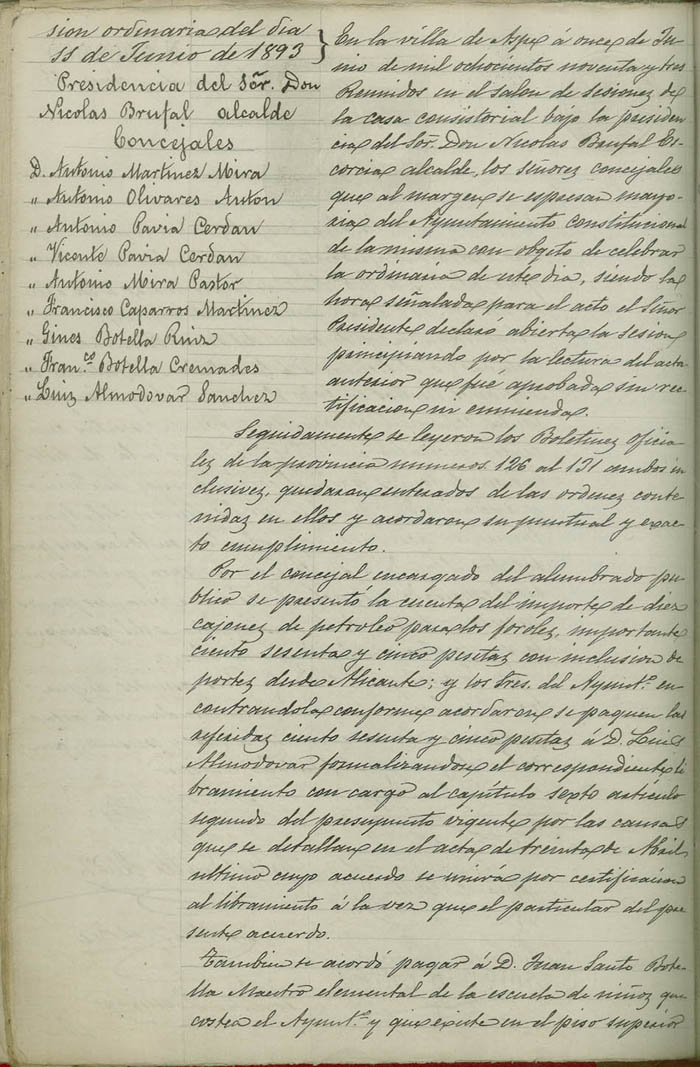 sion ordinaria del dia
11 de Junio de 1893
Presidencia del Sör. Don
Nicolas Brufal alcalde
Concejales
D. Antonio Martinez Mira
" Antonio Olivares Anton
" Antonio Pavia Cerdan
" Vicente Pavia Cerdan
" Antonio Mira Pastor
" Francisco Caparros Martinez
" Gines Botella Ruiz
" Fran.co Botella Cremades
" Luiz Almodovar Sanchez
En la villa de Aspe á once de Ju-
nio de mil ochocientos noventa y tres
Reunidos en el salon de sesionez de
la casa consistorial bajo la presiden
cia del Sor. Don Nicolas Brufal Es-
corcia alcalde, los señorez concejales
que al margen se espresan mayo-
ria del Ayuntamiento constitucional
de la misma con obgeto de celebrar
la ordinaria de este dia, siendo la
hora señalada para el acto el Señor
Presidente declaró abierta la sesion
principiando por la lectura del acta
anterior que fué aprobada sin rec-
tificacion ni enmienda.
Seguidamente se leyeron los Boletinez oficia-
lez de la provincia numeros 126 al 131 ambos in
clusivez, quedaron enterados de las ordenez conte-
nidaz en ellos y acordaron su puntual y exac-
to cumplimiento.
Por el concejal encargado del alumbrado pu-
blico se presentó la cuenta del importe de diez
cajonez de petroleo para los farolez, importante
ciento sesenta y cinco pesetaz con inclusion de
portez desde Alicante; y los tres. del Ayunt.o en-
contrandola conforme acordaron se paguen las
referidaz ciento sesenta y cinco pesetaz á D. Luis
Almodovar formalizandose el correspondiente li-
bramiento con cargo al capitulo sexto articulo
segundo del presupuesto vigente por las causas
que se detallan en el acta de treinta de Abril
ultimo cuyo acuerdo se unirá por certificacion
al libramiento á la vez que el particular del pre
sente acuerdo.
Tambien se acordó pagar á D. Juan Santo Bote-
lla Maestro elemental de la escuela de niñoz que
costea el Ayunt.o y que existe en el piso superior